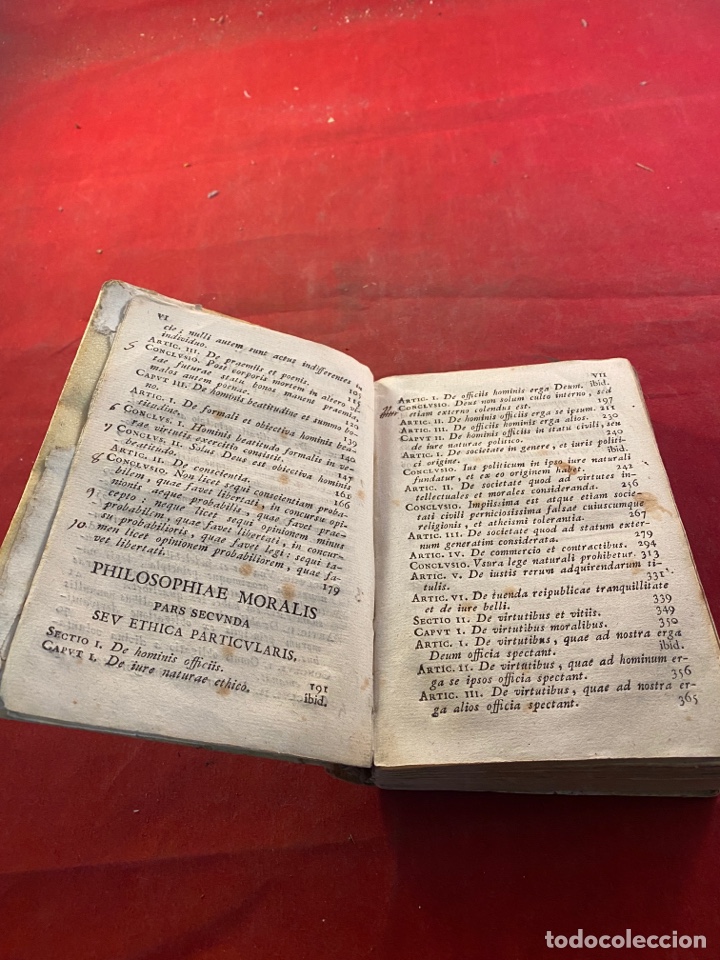 VI
cie; nulli autem sunt actus indifferentes in
individuo. 103
ARTIC. III. De praemiis et poenis. 115
5 CONCLVSIO. Post corporis mortem in altero vi-
tae futurae statu bonos manens praemia,
malos autem poenae. 120
CAPVT III. De hominis beatitudine et summo bo-
no. 122
ARTIC. I. De formali et obiectiva hominis bea-
titudine. 139
6 CONCLVS. I. Hominis beatitudo formalis in ve-
rae virtutis exercitio consistit. 140
7 CONCLVS. II. Solus Deus est obiectiva hominis
beatitudo. 147
ARTIC. II. De conscientia. 161
8 CONCLVSIO. Non licet qui conscientiam proba-
bilem, quae favet libertati, in concursu opi-
nionis, aeque probabilis, quae favet prae-
9 cepto: nec licet sequi opinionem minus
probabilem, quae favet libertati, in concur-
su probabilioris, quae favet legi; sequi ta-
10 men licet opinionem probabiliorem, quae fa-
vet libertati. 179
PHILOSOPHIAE MORALIS
PARS SECVNDA
SEV ETHICA PARTICVLARIS.
SECTIO I. De hominis officiis. 191
CAPVT I. De iure naturae ethico. ibid.
VII
ARTIC. I. De officiis hominis erga Deum. ibid.
CONCLVSIO. Deus non solum culto interno, sed
etiam externo colendus est. 197
ARTIC. II. De hominis officiis erga se ipsum. 211
ARTIC. III. De officiis hominis erga alios. 230
CAPVT II. De hominis officiis in statu civili, seu
de iure naturae politico. 240
ARTIC. I. De societate in genere, et iuris politi-
ci origine. ibid.
CONCLVSIO. Ius politicum in ipso iure naturali
fundatur, et ex eo originem habet. 242
ARTIC. II. De societate quod ad virtutes in-
tellectuales et morales consideranda. 256
CONCLVSIO. Impiissima est atque etiam societ-
tati civili perniciosissima falsae cuiuscumque
religionis, et atheismi tolerantia. 267
ARTIC. III. De societate quod ad statum exter-
num generatim considerata. 279
ARTIC. IV. De commercio et contractibus. 294
CONCLVSIO. Vsura lege naturali prohibetur. 313
ARTIC. V. De iustis rerum adquirendarum ti-
tulis. 331
ARTIC. VI. De tuenda reipublicae tranquillitate
et de iure belli. 339
SECTIO II. De virtutibus et vitiis. 349
CAPVT I. De virtutibus moralibus. 350
ARTIC. I. De virtutibus, quae ad nostra erga
Deum officia spectant. ibid.
ARTIC. II. De virtutibus, quae ad hominum er-
ga se ipsos officia spectant. 356
ARTIC. III. De virtutibus, quae ad nostra er-
ga alios officia spectant. 365
todocoleccion